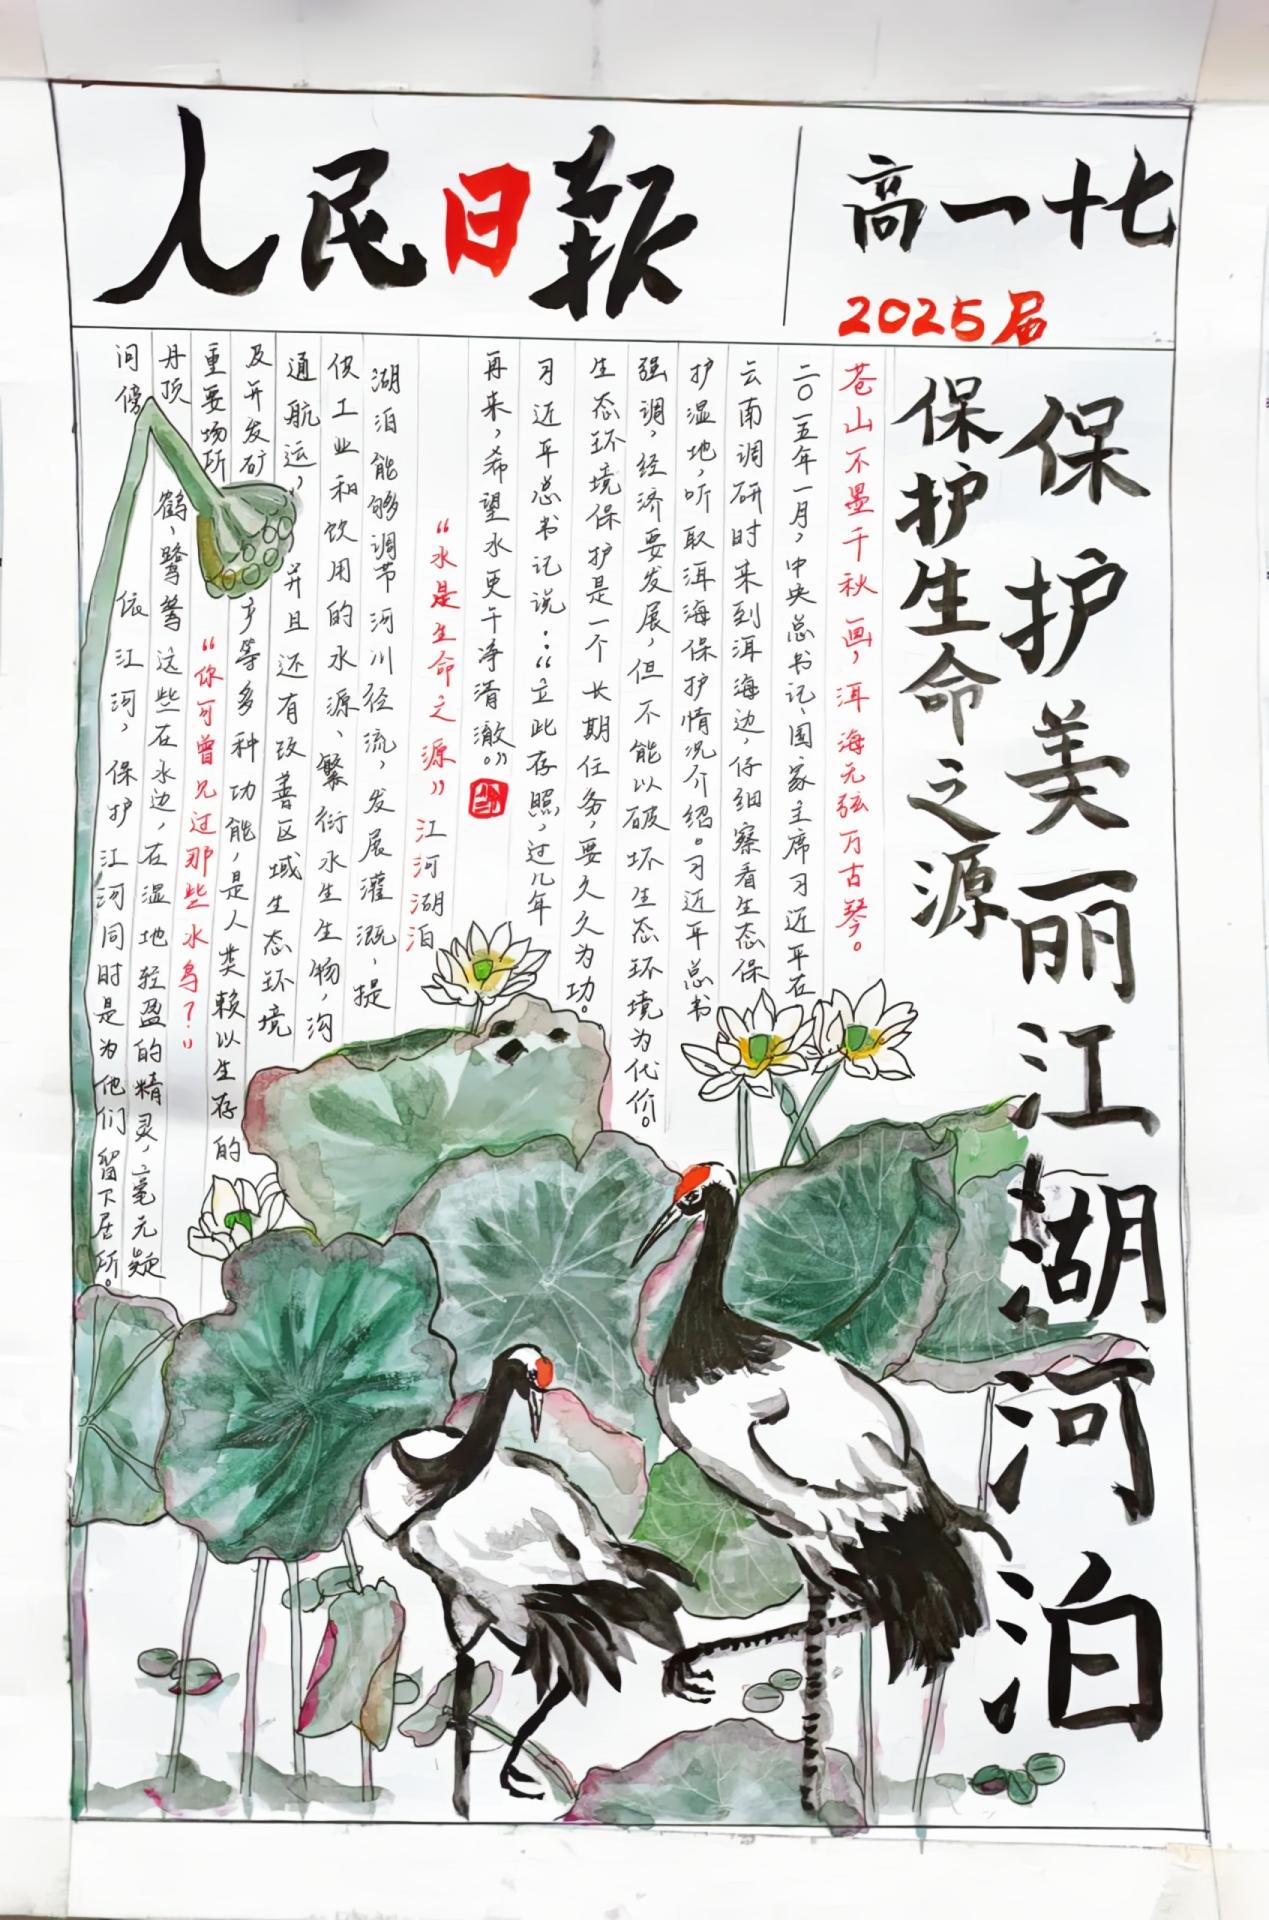 人民日报
高一十七
2025届
保护美丽江湖河泊
保护生命之源
苍山不墨千秋画，洱海无弦万古琴。
二〇一五年一月，中央总书记、国家主席习近平在
云南调研时来到洱海边，仔细察看生态保
护湿地，听取洱海保护情况介绍。习近平总书
强调，经济要发展，但不能以破坏生态环境为代价。
生态环境保护是一个长期任务，要久久为功。
习近平总书记说：“立此存照，过几年
再来，希望水更干净清澈。”
“水是生命之源”江河湖泊
湖泊能够调节河川径流，发展灌溉，提
供工业和饮用的水源、繁衍水生生物，沟
通航运，并且还有改善区域生态环境
及开发矿产等多种功能，是人类赖以生存的
重要场所“你可曾见过那些水鸟？”
丹顶鹤，鹭鸶这些在水边，在湿地轻盈的精灵，毫无疑
问傍依江河，保护江河同时是为他们留下居所。